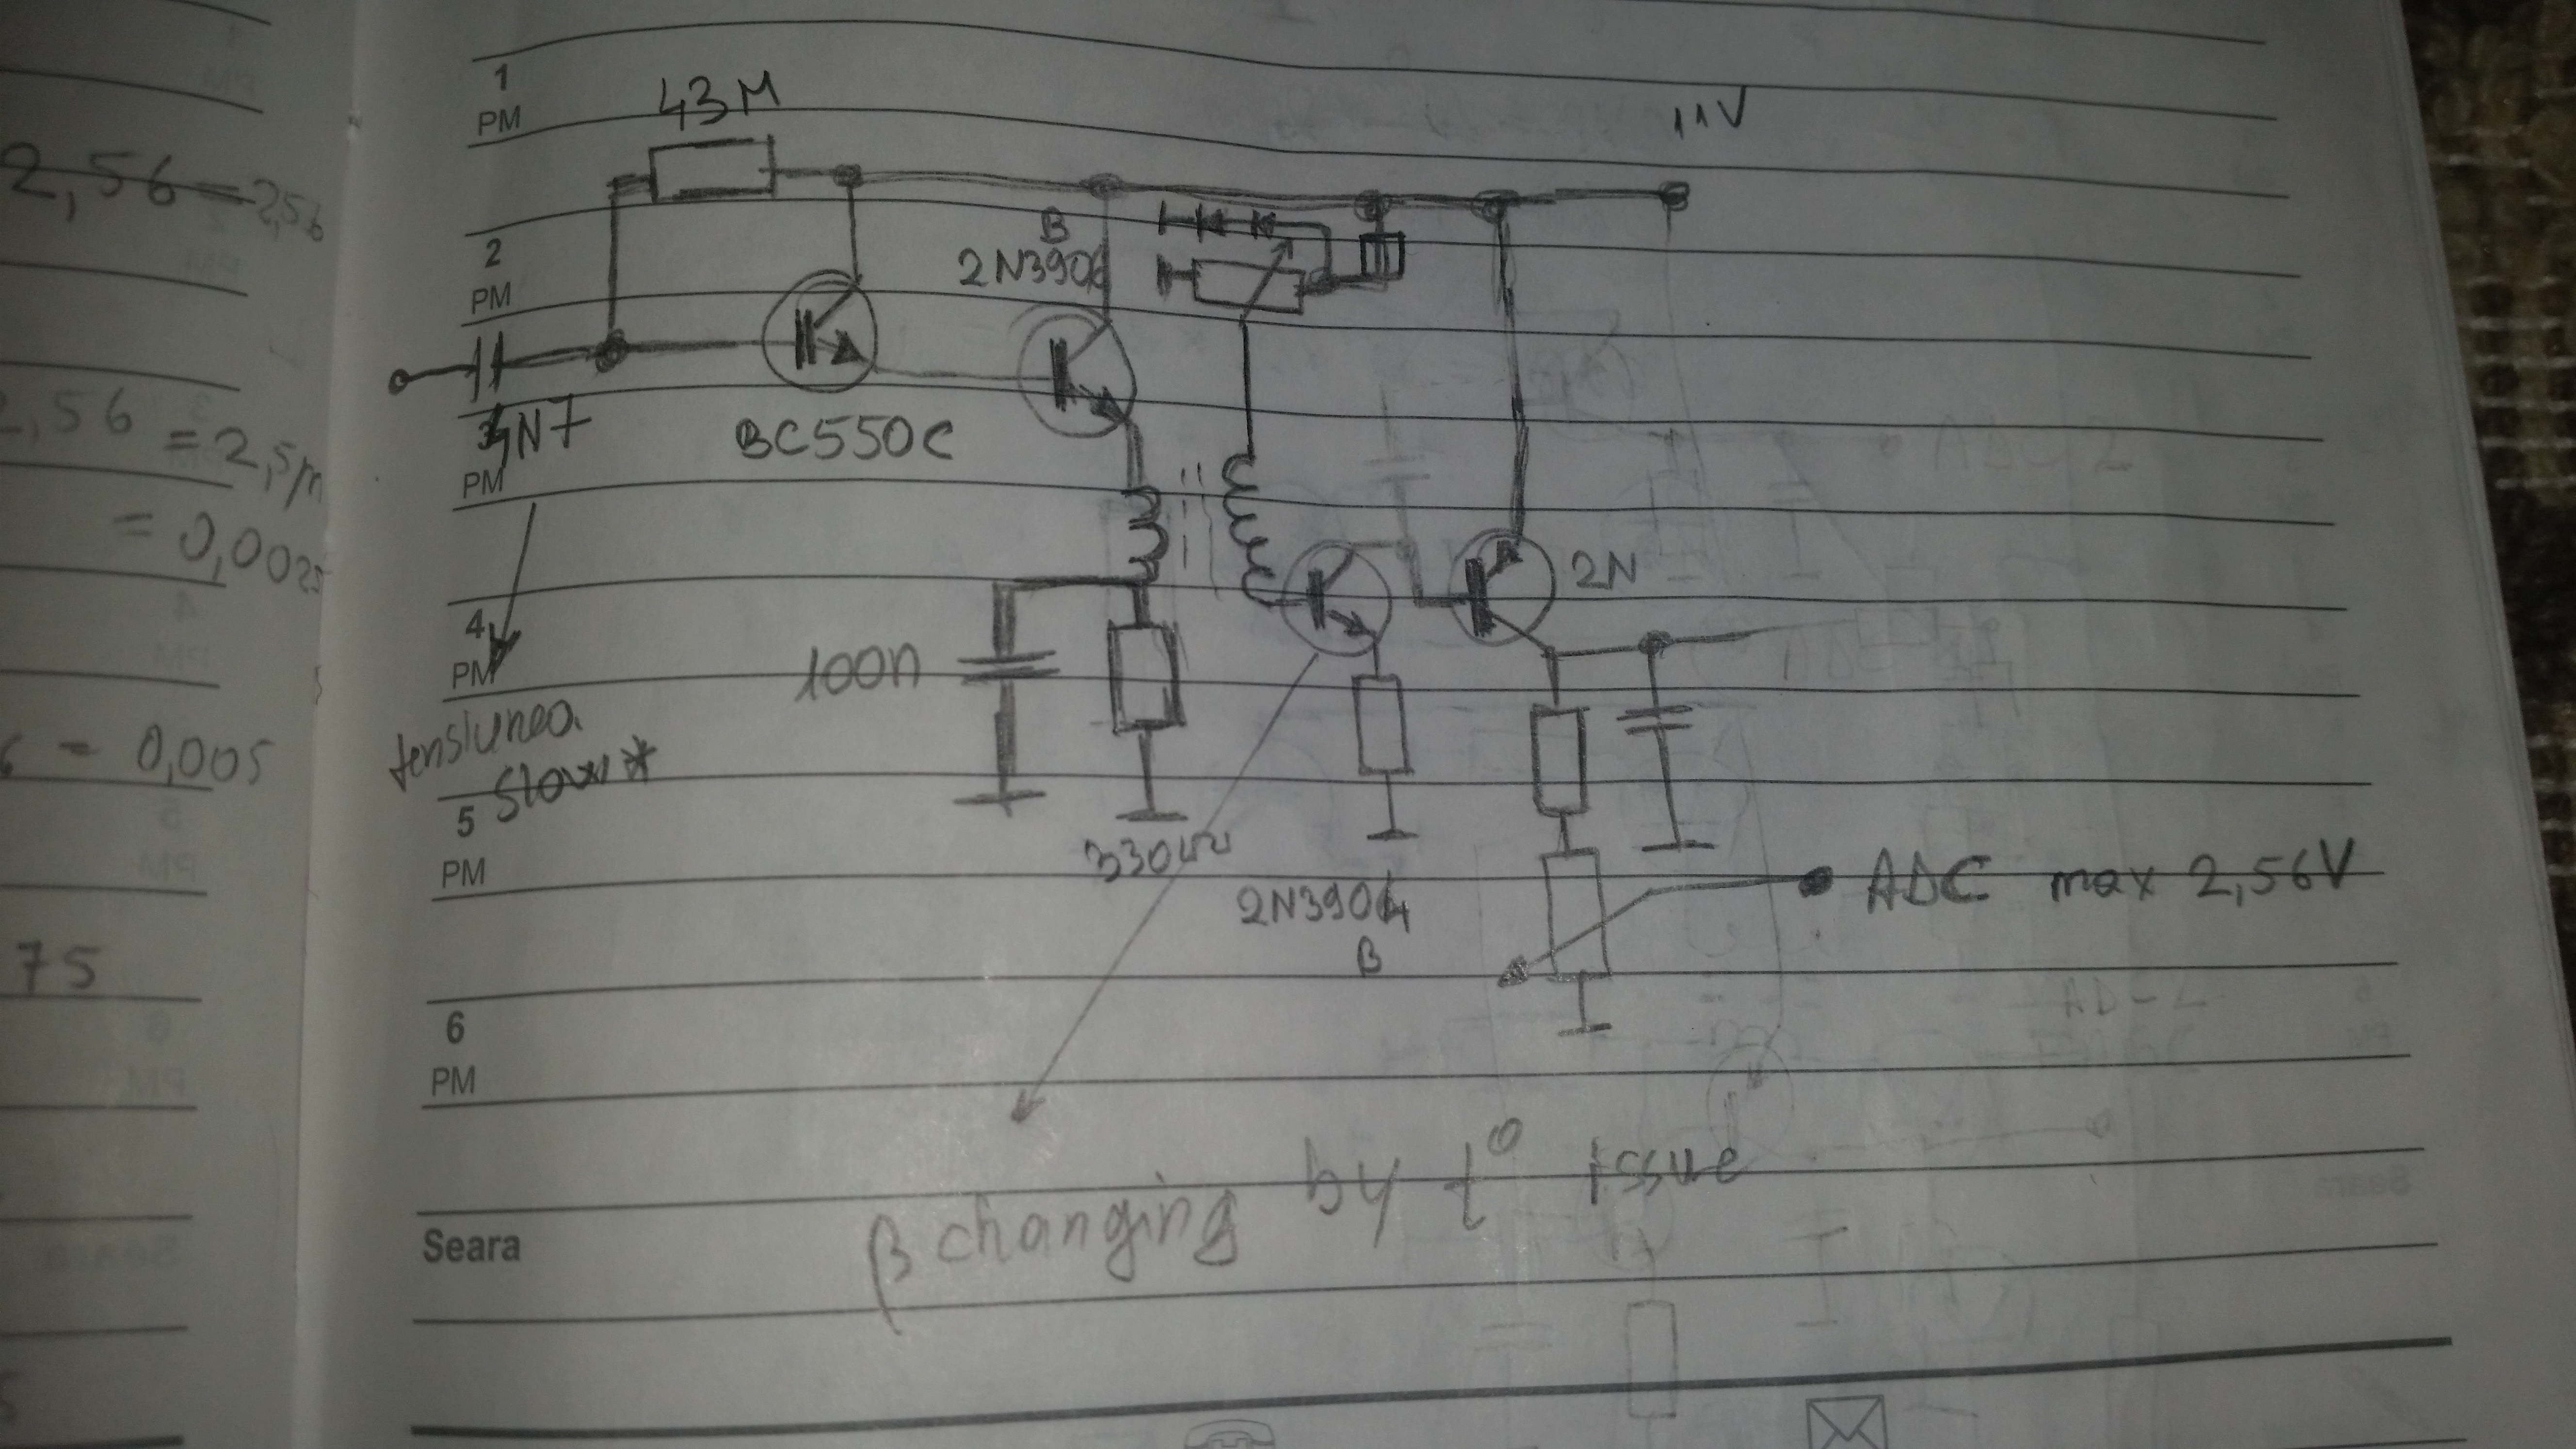 2,56 = 2,56
2,56
= 2,5m
= 0,0025
= 0,005
75
1
PM
43M
11V
2
PM
B
2N3906
N7
BC550C
3
PM
2N
4
PM
100n
tensiunea
slow*
5
PM
330
2N3904
B
ADC max 2,56V
6
PM
β changing by t° issue
Seara